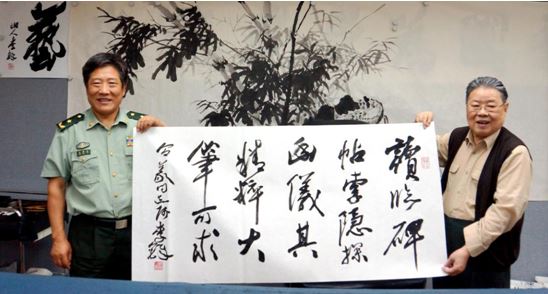 藝
讀臨碑
帖索隱探
幽儀其
精粹大
筆可求